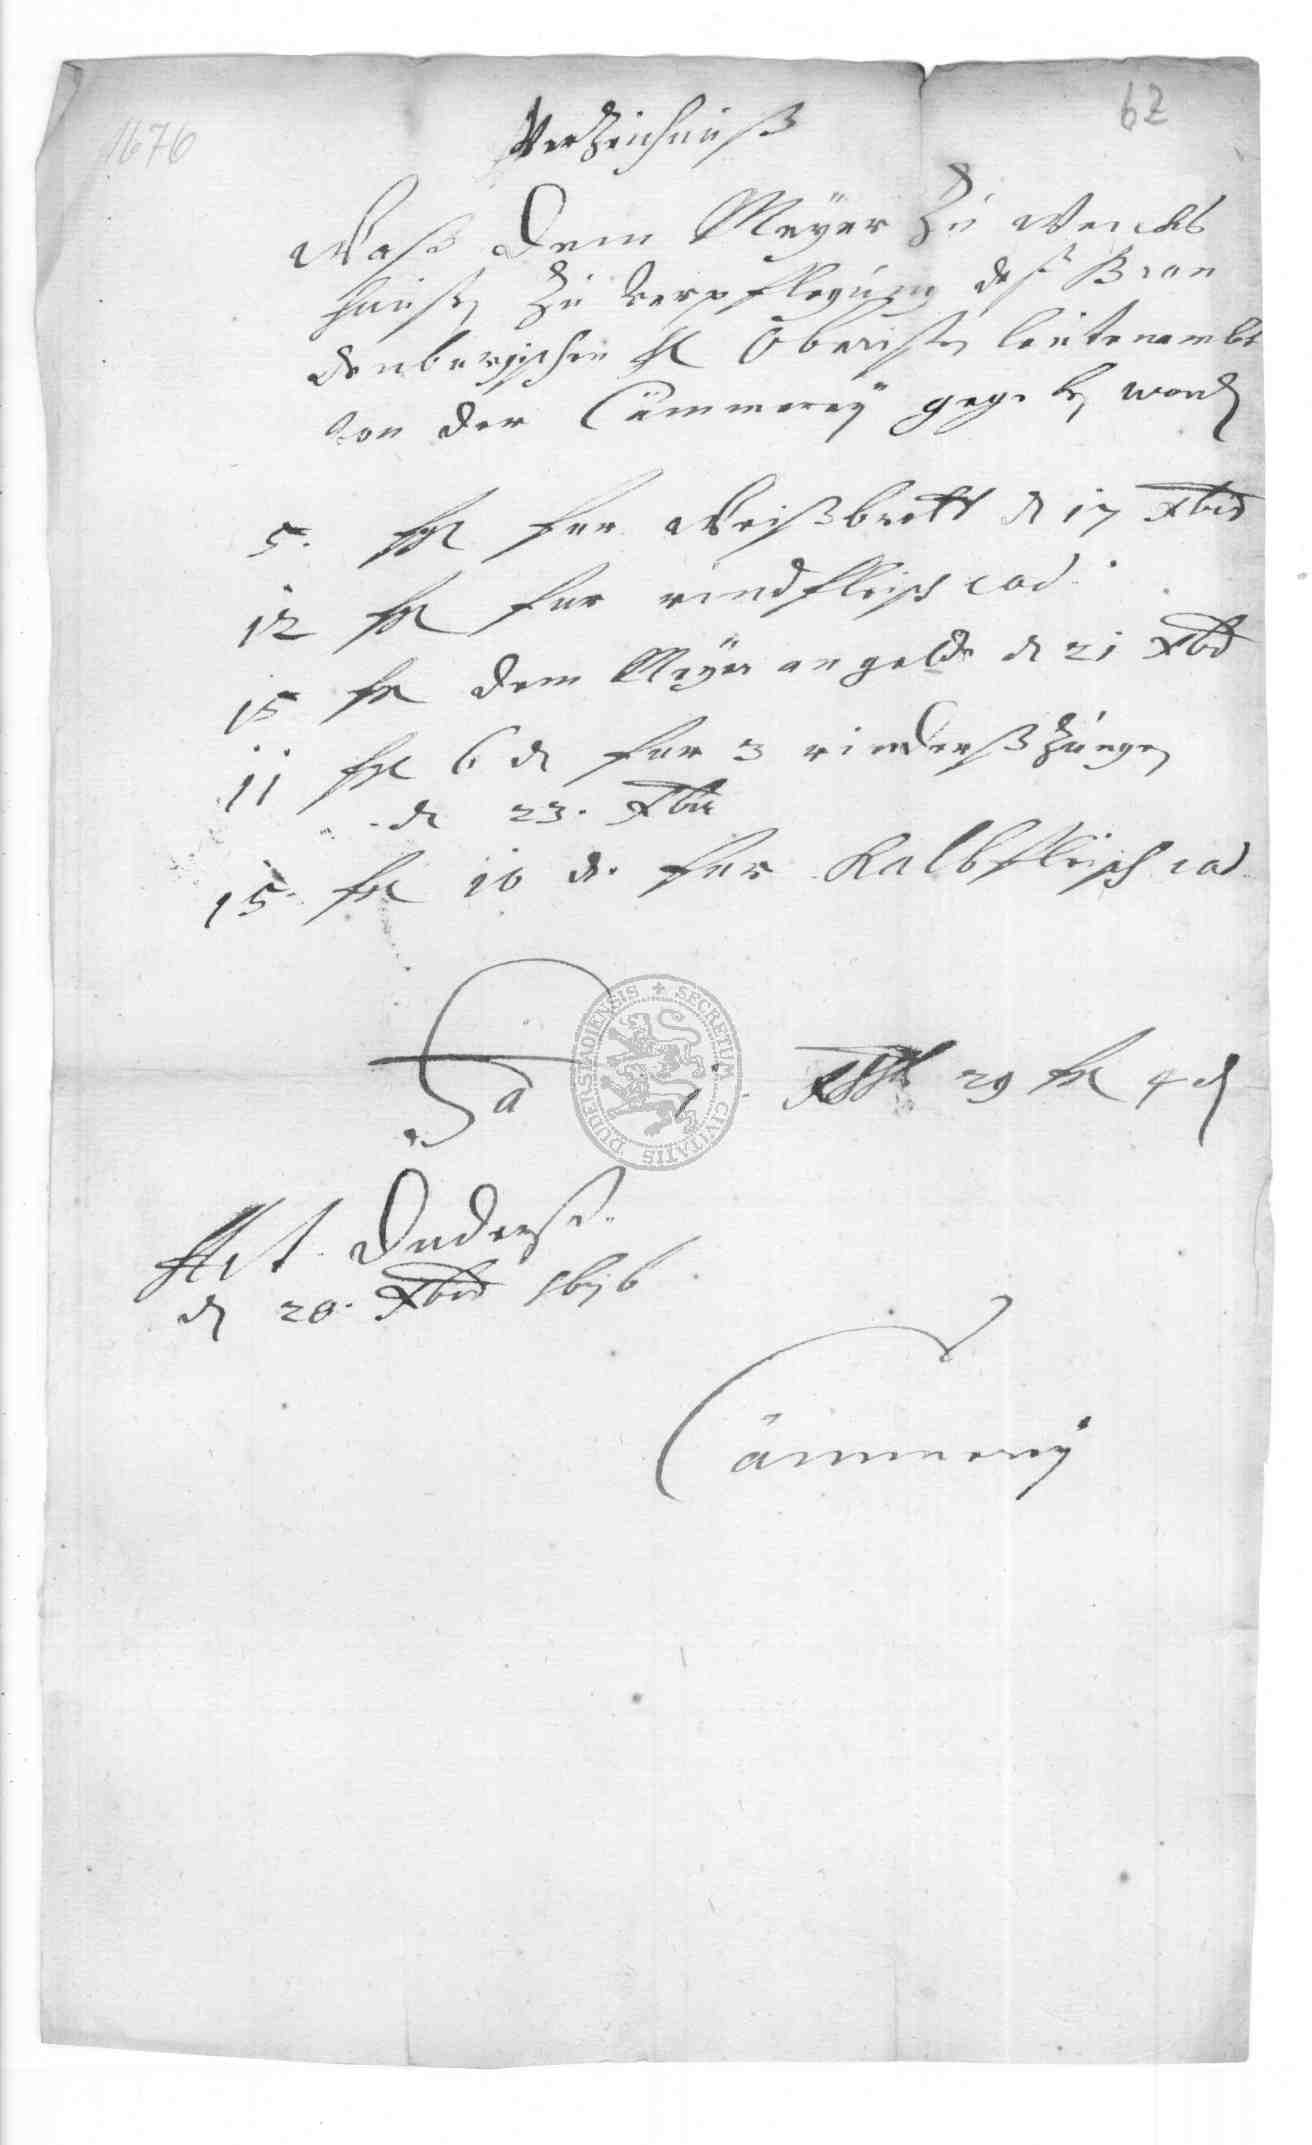 1676
62
Verzeichniß
Waß dem Meyer zu Wercks
hausen zu verpflegung deß Bran
denburgischen H Obristen leutenambts
von der Cämmerey gegeben worden
5. ßl fur Weißbrott d 17 Xbris
12 ßl fur rindfleisch eod.
15 ßl dem Meyer an gelde d 21 Xbris
11 ßl 6 d fur 3 rinderßzungen
d 23. Xbris
15 ßl 10 d. fur Kalbfleisch eod
Sa 1. Rthl 29 ßl 4 d
SECRETUM CIVITATIS DUDERSTADIENSIS
Act. Duderst.
d 28. Xbris 1676
Cämmerey